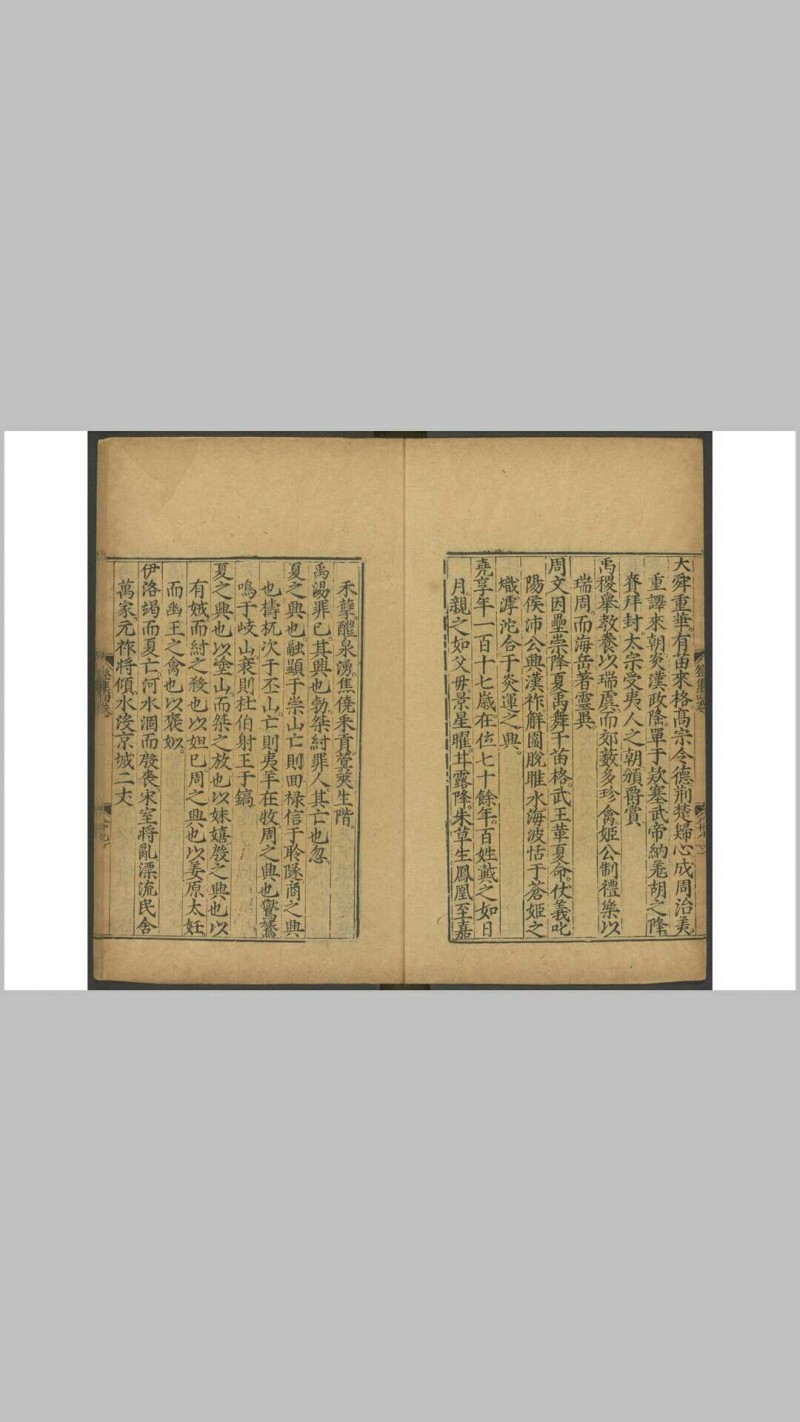 大舜重華有苗來格高宗令德荆楚歸心成周治美
重譯來朝炎漢政隆單于欵塞武帝納羗胡之降
眷拜封太宗受夷人之朝頒爵賞
禹稷舉教養以瑞虞而郊藪多珍禽姬公制禮樂以
瑞周而海岳著靈異
周文因壘崇降夏禹舞干苗格武王華夏命仗義叱
陽侯沛公興漢祚解圍脫睢水海波恬于蒼姬之
熾滹沱合于炎運之興
堯享年一百十七歲在位七十餘年百姓戴之如日
月親之如父母景星曜甘露降朱草生鳳凰至嘉
禾孳醴泉湧焦僥来貢蓂莢生階
禹湯罪已其興也勃桀紂罪人其亡也忽
夏之興也融顯于崇山亡則回禄信于聆隧商之興
也檮杌次于丕山亡則夷羊在牧周之興也鸑鷟
鳴于岐山衰則杜伯射王于鎬
夏之興也以塗山而桀之放也以妹嬉殷之興也以
有娀而紂之殺也以妲已周之興也以姜原太妊
而幽王之禽也以褒姒
伊洛竭而夏亡河水涸而殷喪宋室將亂漂流民舍
萬家元祚將傾水没京城二丈